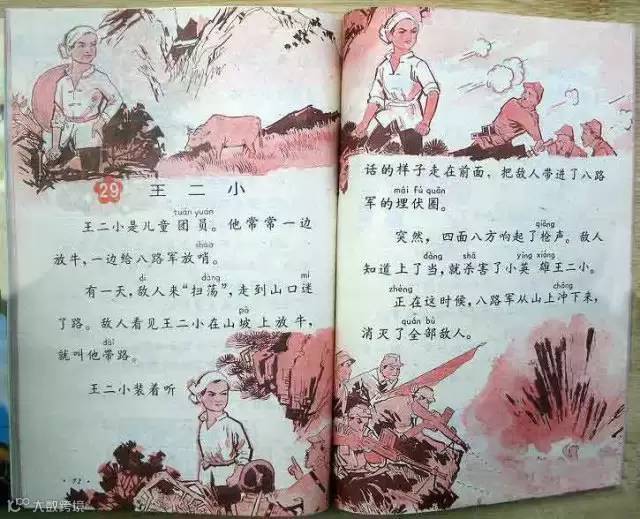 29 王二小
tuán yuán
王二小是儿童团员。他常常一边
shào
放牛,一边给八路军放哨。
dí dàng mí
有一天,敌人来“扫荡”,走到山口迷
pō
了路。敌人看见王二小在山坡上放牛,
dài
就叫他带路。
王二小装着听
· 72 ·
话的样子走在前面,把敌人带进了八路
mái fú quān
军的埋伏圈。
qiāng
突然,四面八方响起了枪声。敌人
dàng shā yīng xióng
知道上了当,就杀害了小英雄王二小。
zhèng chōng
正在这时候,八路军从山上冲下来,
quán bù
消灭了全部敌人。
大数跨境